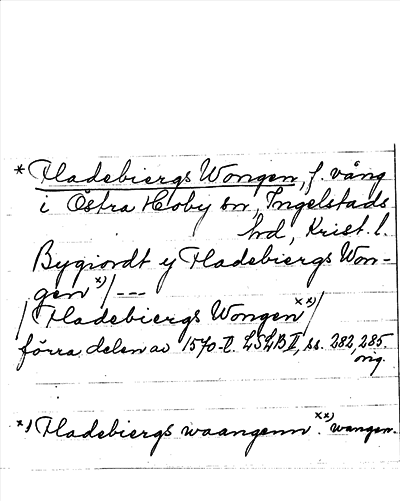 * Fladebiergs Wongen, f. vång
i Östra Hoby sn, Ingelstads
hd, Krist. l.
Bygiordt y Fladebiergs Won-
gen x)/ ---
/ Fladebiergs Wongen xx)/
förra delen av 1570-t. LSLB II, ss. 282, 285
orig.
x) Fladebiergs waangenn. xx) wangen.